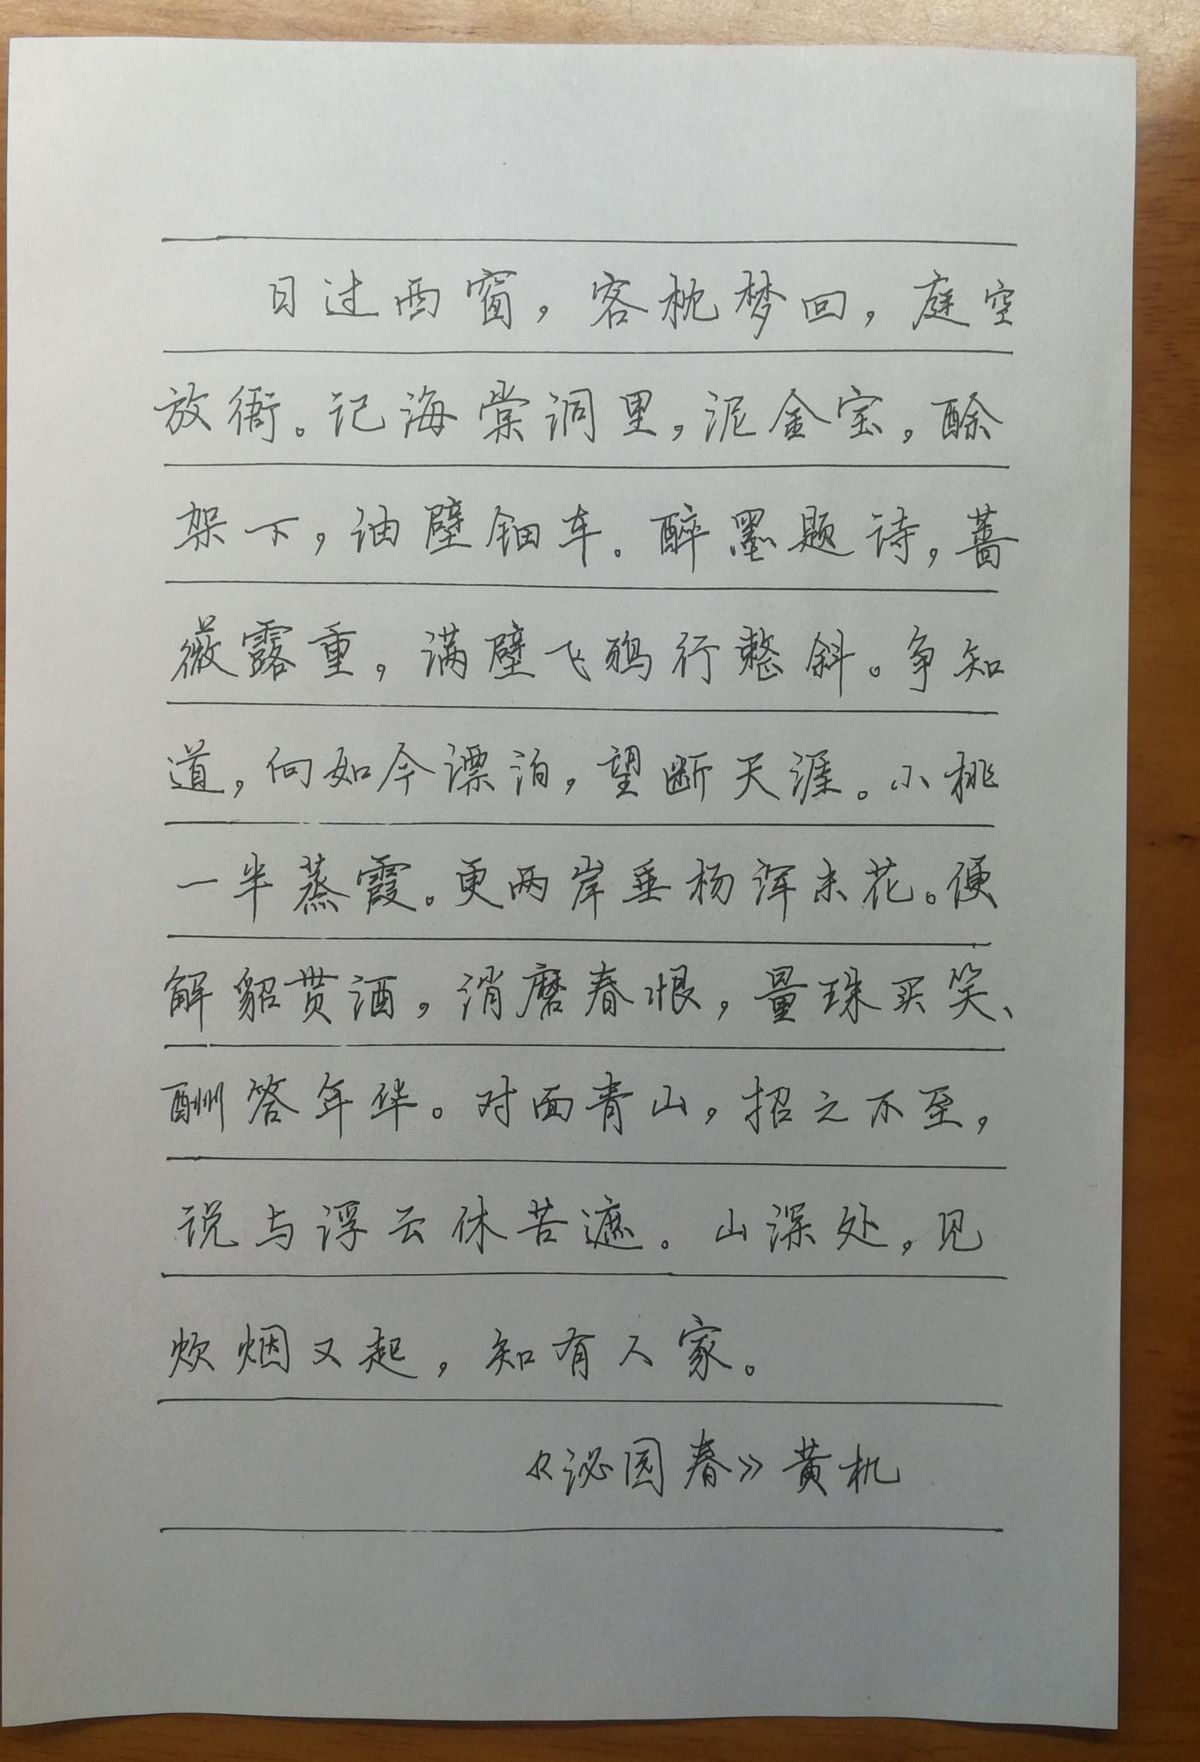 日过西窗，客枕梦回，庭空
放衙。记海棠洞里，泥金宝，酴
架下，油壁钿车。醉墨题诗，蔷
薇露重，满壁飞鸦行整斜。争知
道，向如今漂泊，望断天涯。小桃
一半蒸霞。更两岸垂杨浑未花。便
解貂贳酒，消磨春恨，量珠买笑、
酬答年华。对面青山，招之不至，
说与浮云休苦遮。山深处，见
炊烟又起，知有人家。
《沁园春》黄机